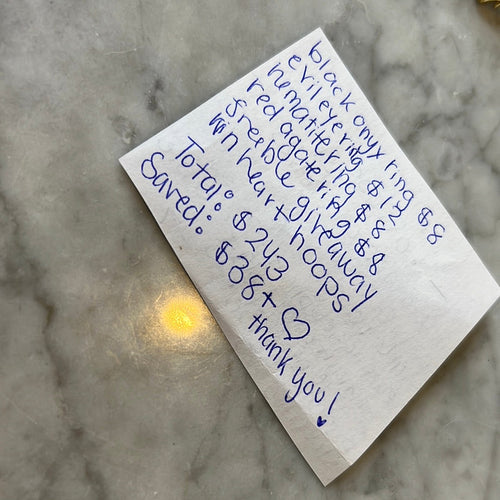 black onyx ring $8
evil eye ring $12
hematite ring $8
red agate ring $8
freebie giveaway
heart hoops
Total: $243
Saved: $38+ ♡
thank you!